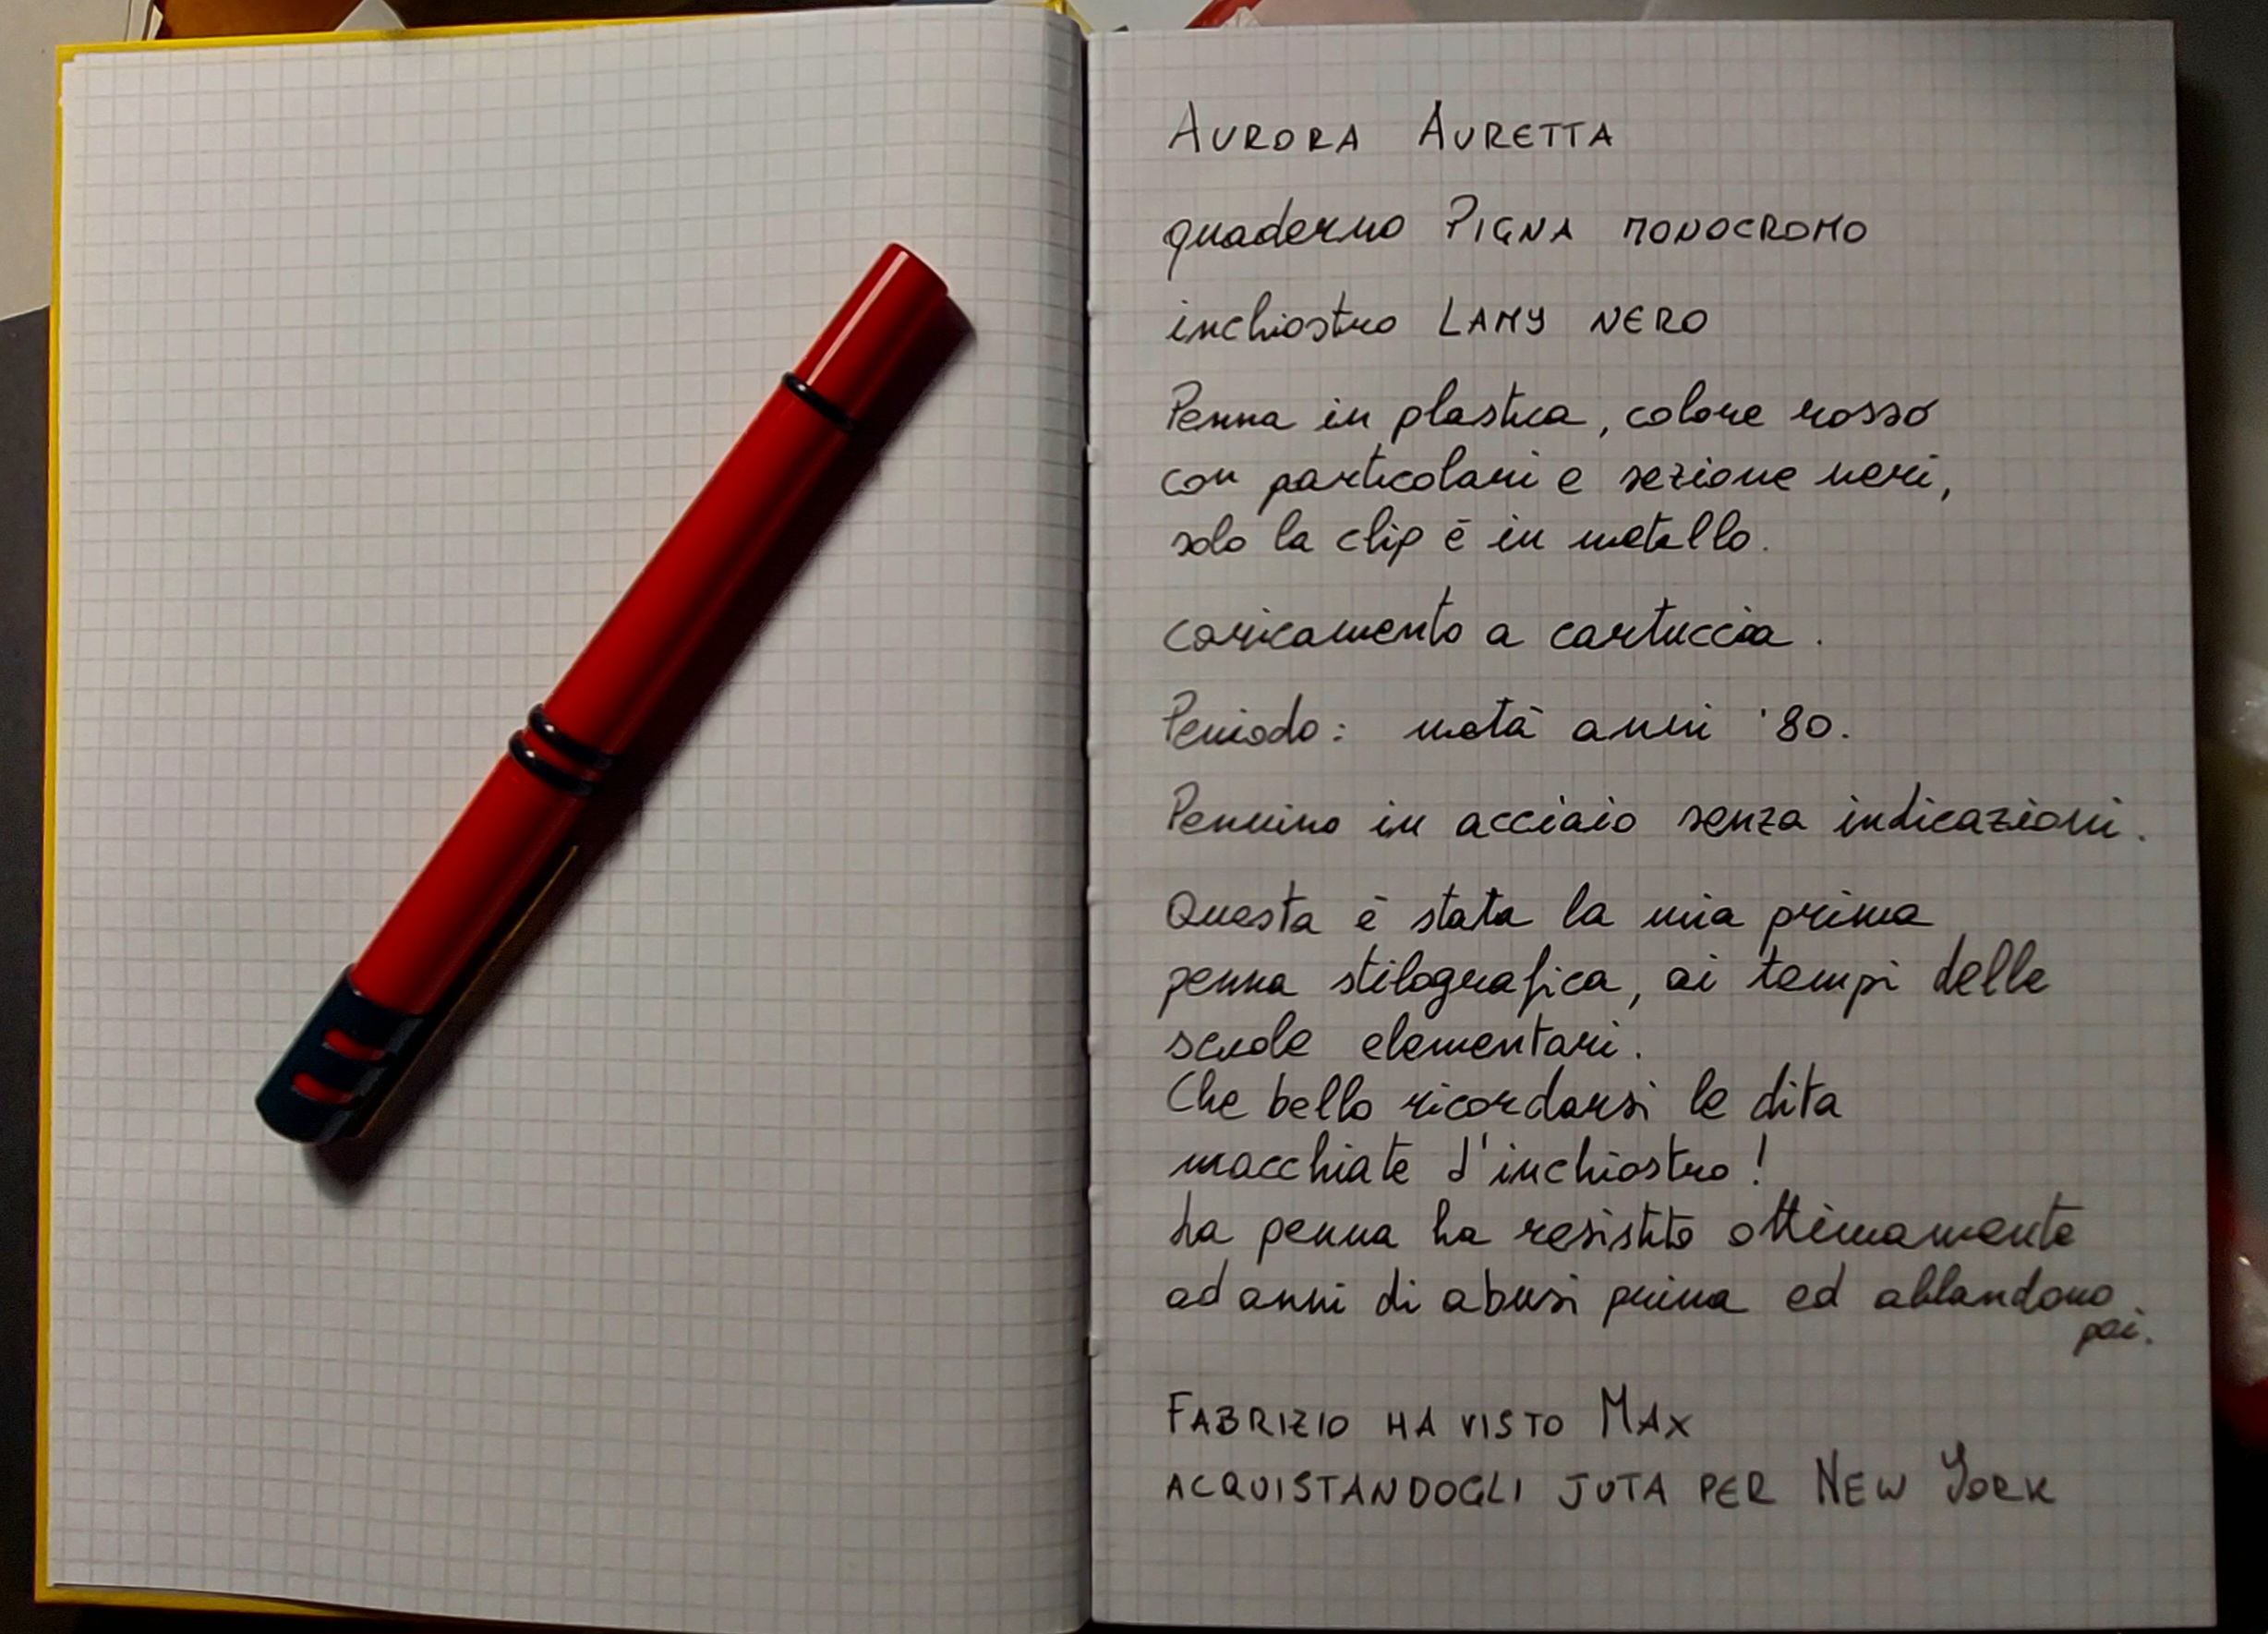 AURORA AURETTA
quaderno PIGNA MONOCROMO
inchiostro LAMY NERO
Penna in plastica, colore rosso
con particolari e sezione neri,
solo la clip è in metallo.
caricamento a cartuccia.
Periodo: metà anni '80.
Pennino in acciaio senza indicazioni.
Questa è stata la mia prima
penna stilografica, ai tempi delle
scuole elementari.
Che bello ricordarsi le dita
macchiate d'inchiostro!
La penna ha resistito ottimamente
ad anni di abusi prima ed abbandono
poi.
FABRIZIO HA VISTO MAX
ACQUISTANDOGLI JUTA PER NEW YORK